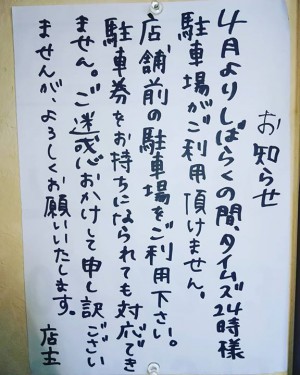 お知らせ
4月よりしばらくの間、タイムズ24時様
駐車場がご利用頂けません。
店舗前の駐車場をご利用下さい。
駐車券をお持ちになられても対応でき
ません。ご迷惑おかけして申し訳ござい
ませんが、よろしくお願いいたします。
店主